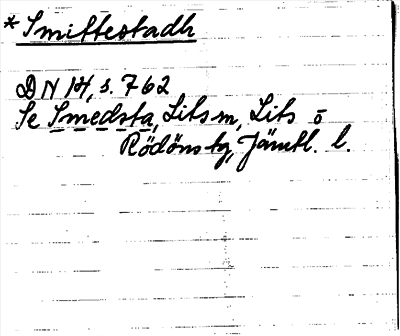 * Smittestadh
DN 14, s. 762
Se Smedsta, Lits sn, Lits ö
Rödöns tg, Jämtl. l.